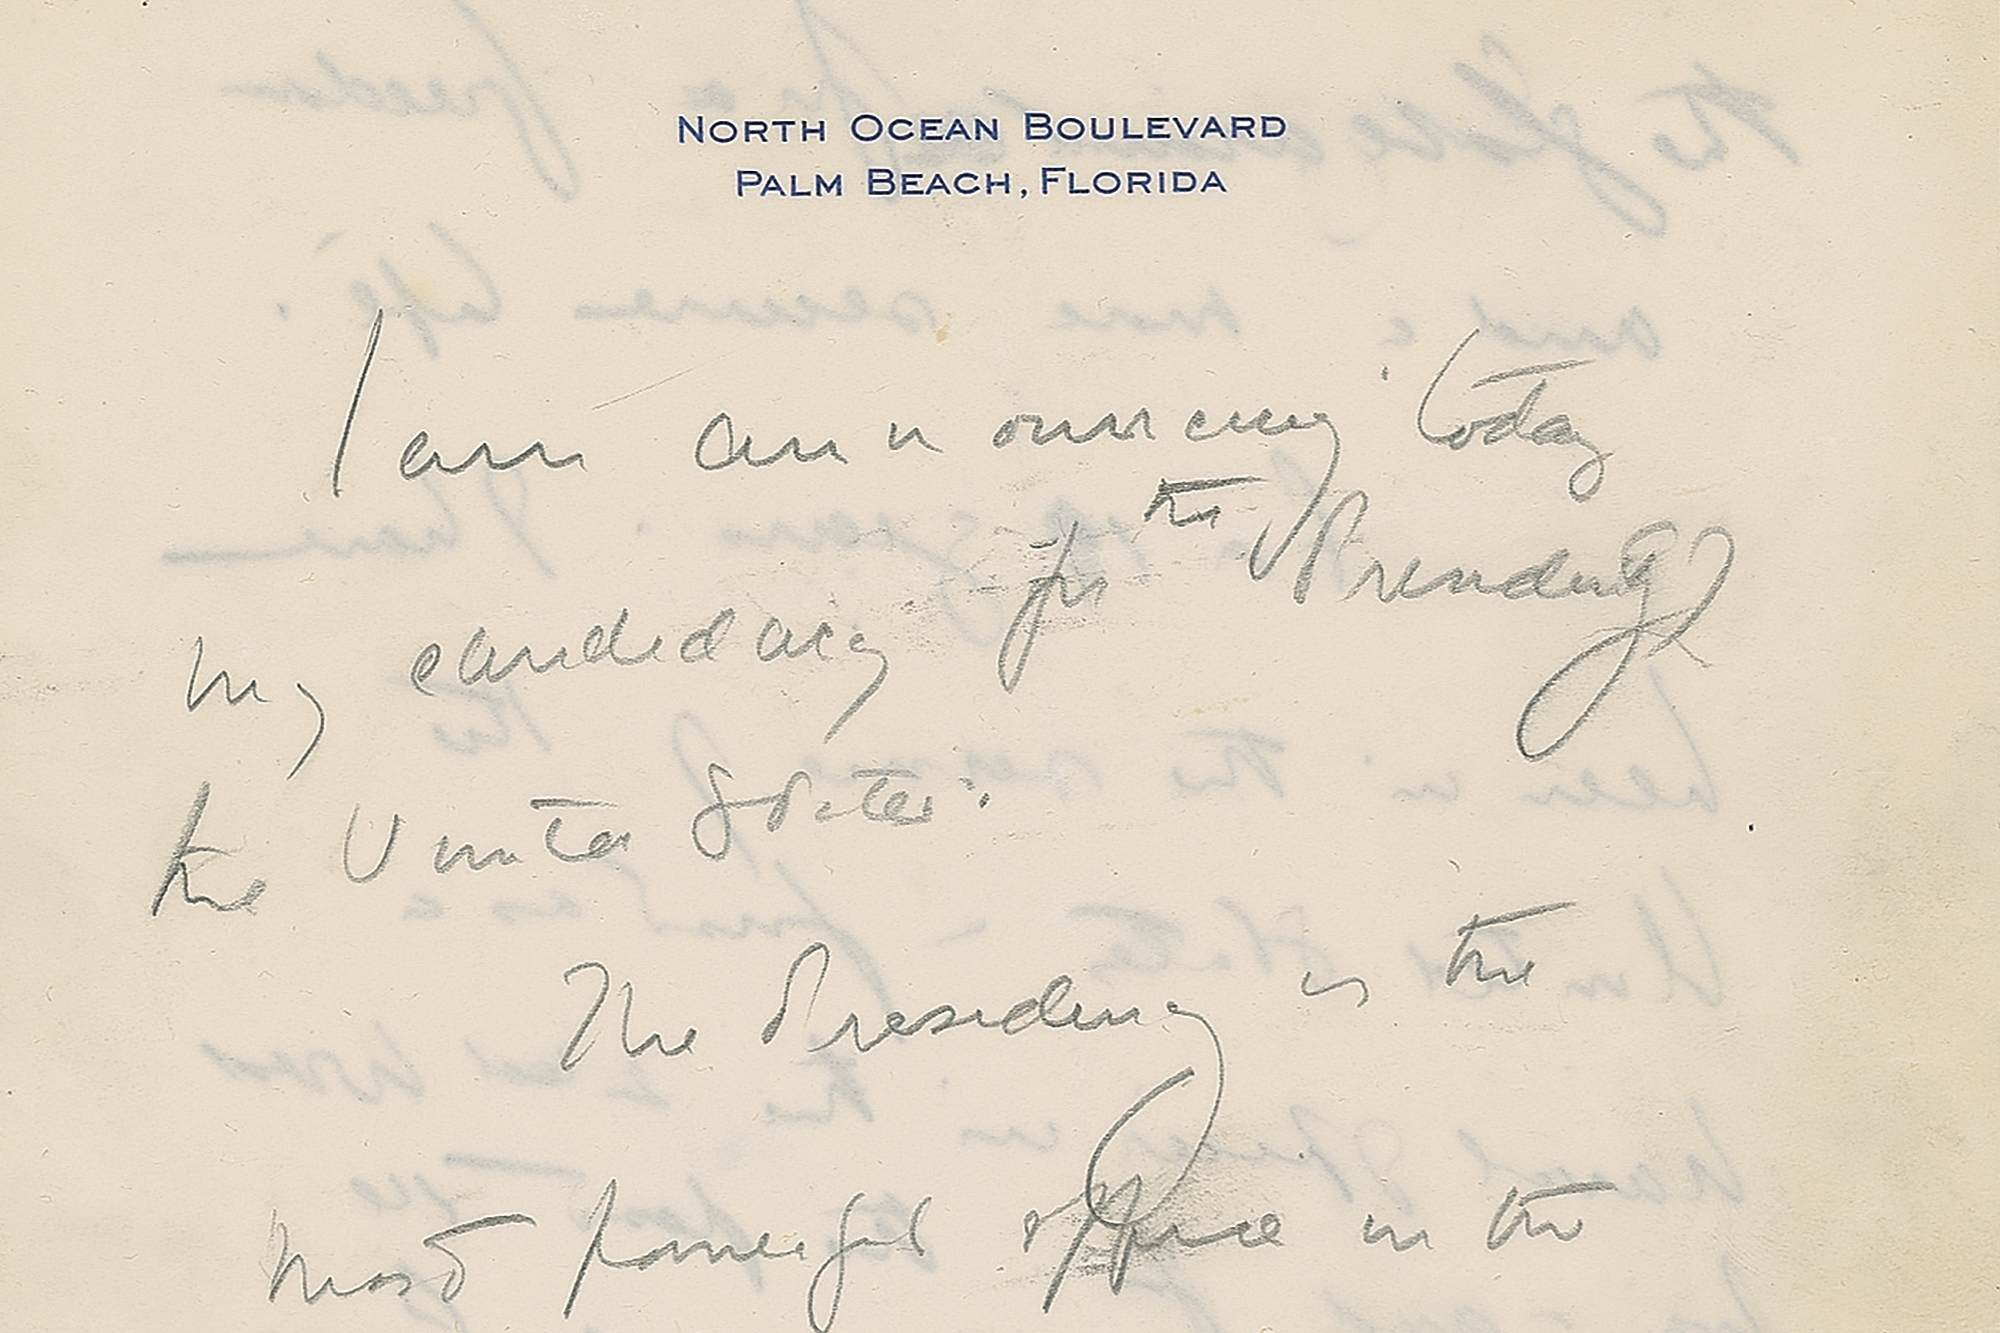 NORTH OCEAN BOULEVARD
PALM BEACH, FLORIDA
I am announcing today
my candidacy for the Presidency
the United States.
The Presidency is the
most powerful office in the